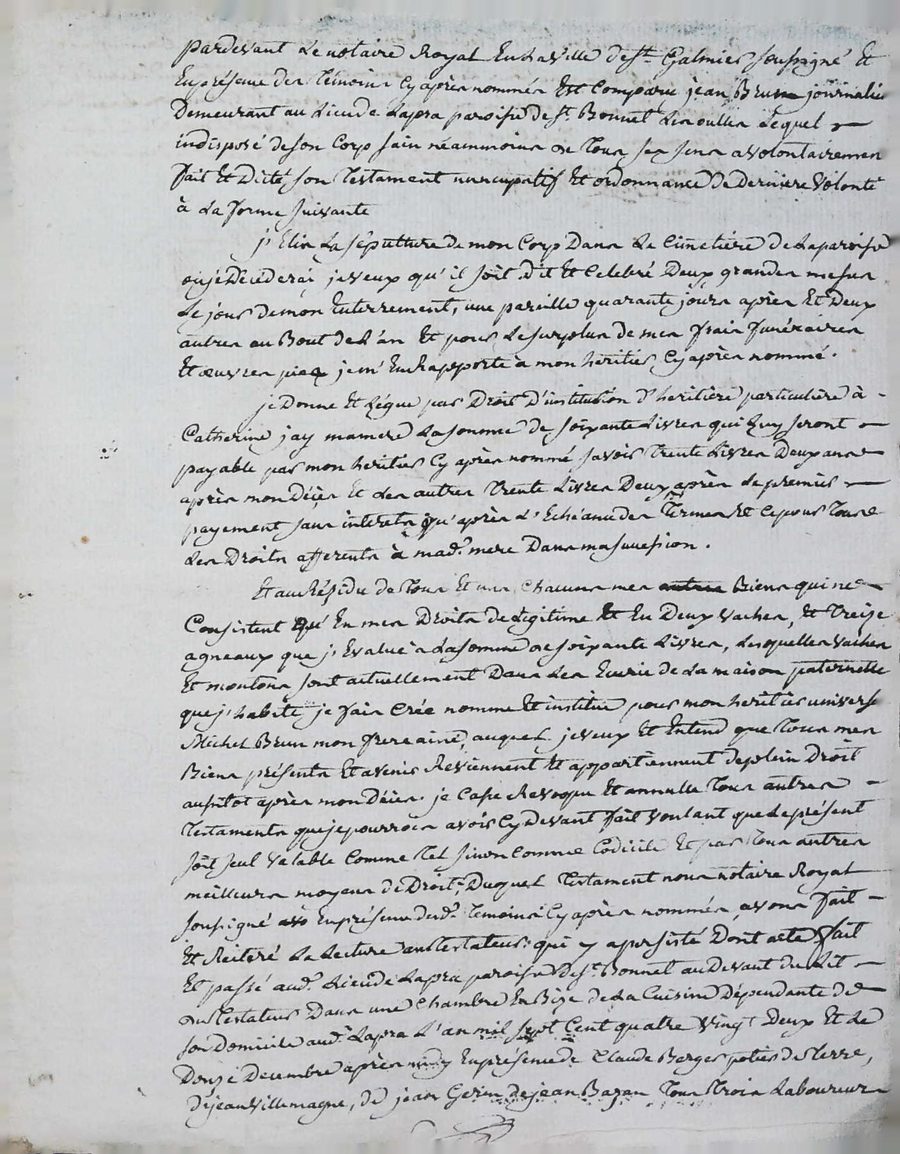 pardevant Le notaire Royal En La Ville de st. Galmier soussigné Et
En présence des Témoins Cy après nommés Est Comparu jean Brun journalier
Demeurant au Lieu de Lapra paroisse de st. Bonnet Les oulles Lequel
indisposé de son Corp sain néammoins de Tous ses sens a volontairemen
fait Et Dicté son Testament nuncupatif Et ordonnance de Derniere Volonté
à La forme suivante
j'Elis La sépulture de mon Corp Dans Le Cimetiére de La paroisse
ou je Decederai, je veux qu'il soit Dit Et Celebré Deux grandes messes
Le jour de mon Enterrement, une pareille quarante jours après Et Deux
autres au Bout de L'an Et pour Le surplus de mes frais funéraires
Et œuvres pies je m'En Rapporte à mon heritier Cy après nommé.
je Donne Et Légue par Droit D'institution D'heritiére particuliére à
Catherine jay ma mere La somme de soixante Livres qui Luy seront
payable par mon heritier Cy après nommé savoir Trente Livres Deux ans
après mon Décès Et Les autres Trente Livres Deux après Le premier
payement sans interets qu'après L'Echéance des Termes Et Ce pour Tous
Les Droits afferents à mad. mere Dans ma succession.
Et au Résidu de Tous Et uns Chacuns mes Biens qui ne
Consistent qu'En mes Droits de Légitime Et En Deux vaches, Et Treize
agneaux que j'Evalue à La somme de soixante Livres, Lesquelles vaches
Et moutons sont actuellement Dans Les Ecurie de La maison paternelle
que j'habite je fais Crée nomme Et institue pour mon heritier universe
Michel Brun mon frere ainé, auquel je veux Et Entend que Tous mes
Biens présents Et avenir Reviennent Et appartiennent de plein Droit
aussitot après mon Décès. je Casse Revoque Et annulle Tous autres
Testaments que je pourrois avoir Cy Devant fait voulant que Le présent
soit seul valable Comme Tel sinon Comme Codicile Et par Tous autres
meilleurs moyens de Droit, Duquel Testament nous notaire Royal
soussigné En présence desd. Temoins Cy après nommés, avons fait
Et Reiteré La Lecture au Testateur qui y a persisté Dont acte fait
Et passé aud. Lieu de Lapra paroisse de st. Bonnet au Devant du Lit
du Testateur Dans une Chambre En Bize de La Cuisine Dépendante de
son Domicile aud. Lapra L'an mil sept Cent quatre vingt Deux Et Le
Douze Decembre après midy En présence de Claude Berger potier de Terre,
de jean Villemagne, de jean Gerin de jean Bazan Tous Trois Laboureurs